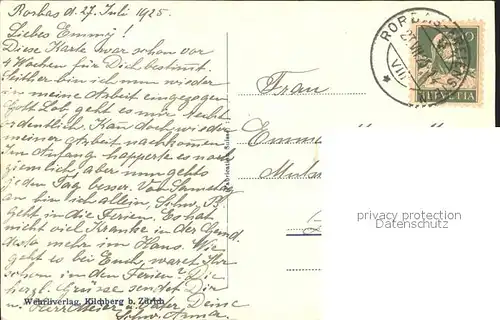 Rorbas d. 27. Juli 1925.
Liebes Emmy!
Diese Karte war schon vor
4 Wochen für Dich bestimt.
Seither bin ich nun wieder
in meine Arbeit eingezogen
Gott Lob geht es mir recht
ordentlich, Kan doch wieder
meiner Arbeit nachkommen.
Im Anfang happerte es noch
ziemlich, aber nun gehts
jeden Tag besser. Von Samstag
an bin ich allein, Schw. B.
geht in die Ferien. Es hat
nicht viel Kranke in der Gemd.
desto mehr im Haus. Wie
geht es bei Euch, waret Ihr
schon in den Ferien? Die
herzl. Grüsse sendet Dir
u. Herr Meier u. Vater Deine
Schw. Anna.
Wehrliverlag, Kilchberg b. Zürich
Fabrication Suisse
RORBAS
VIII
10
HELVETIA
Frau
Emm
privacy protection
Datenschutz